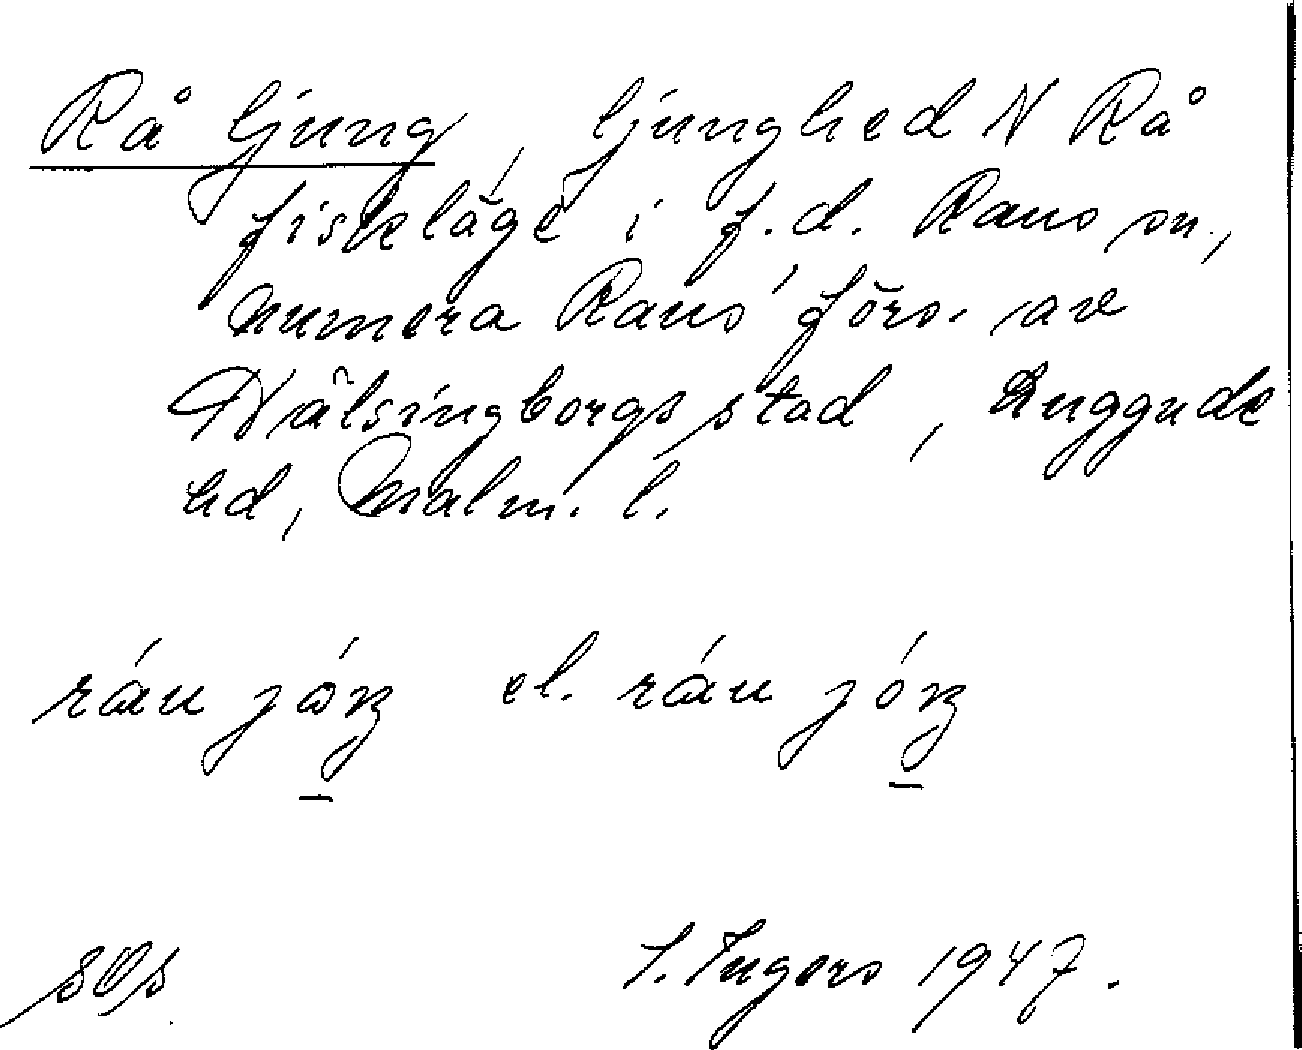 Rå ljung, ljunghed N Rå
fiskeläge i f.d. Raus sn.,
numera Raus förs. av
Hälsingborgs stad, Luggude
hd, Malm. l.
ráu jóŋ el. ráu jóŋ
I. Ingers 1947.